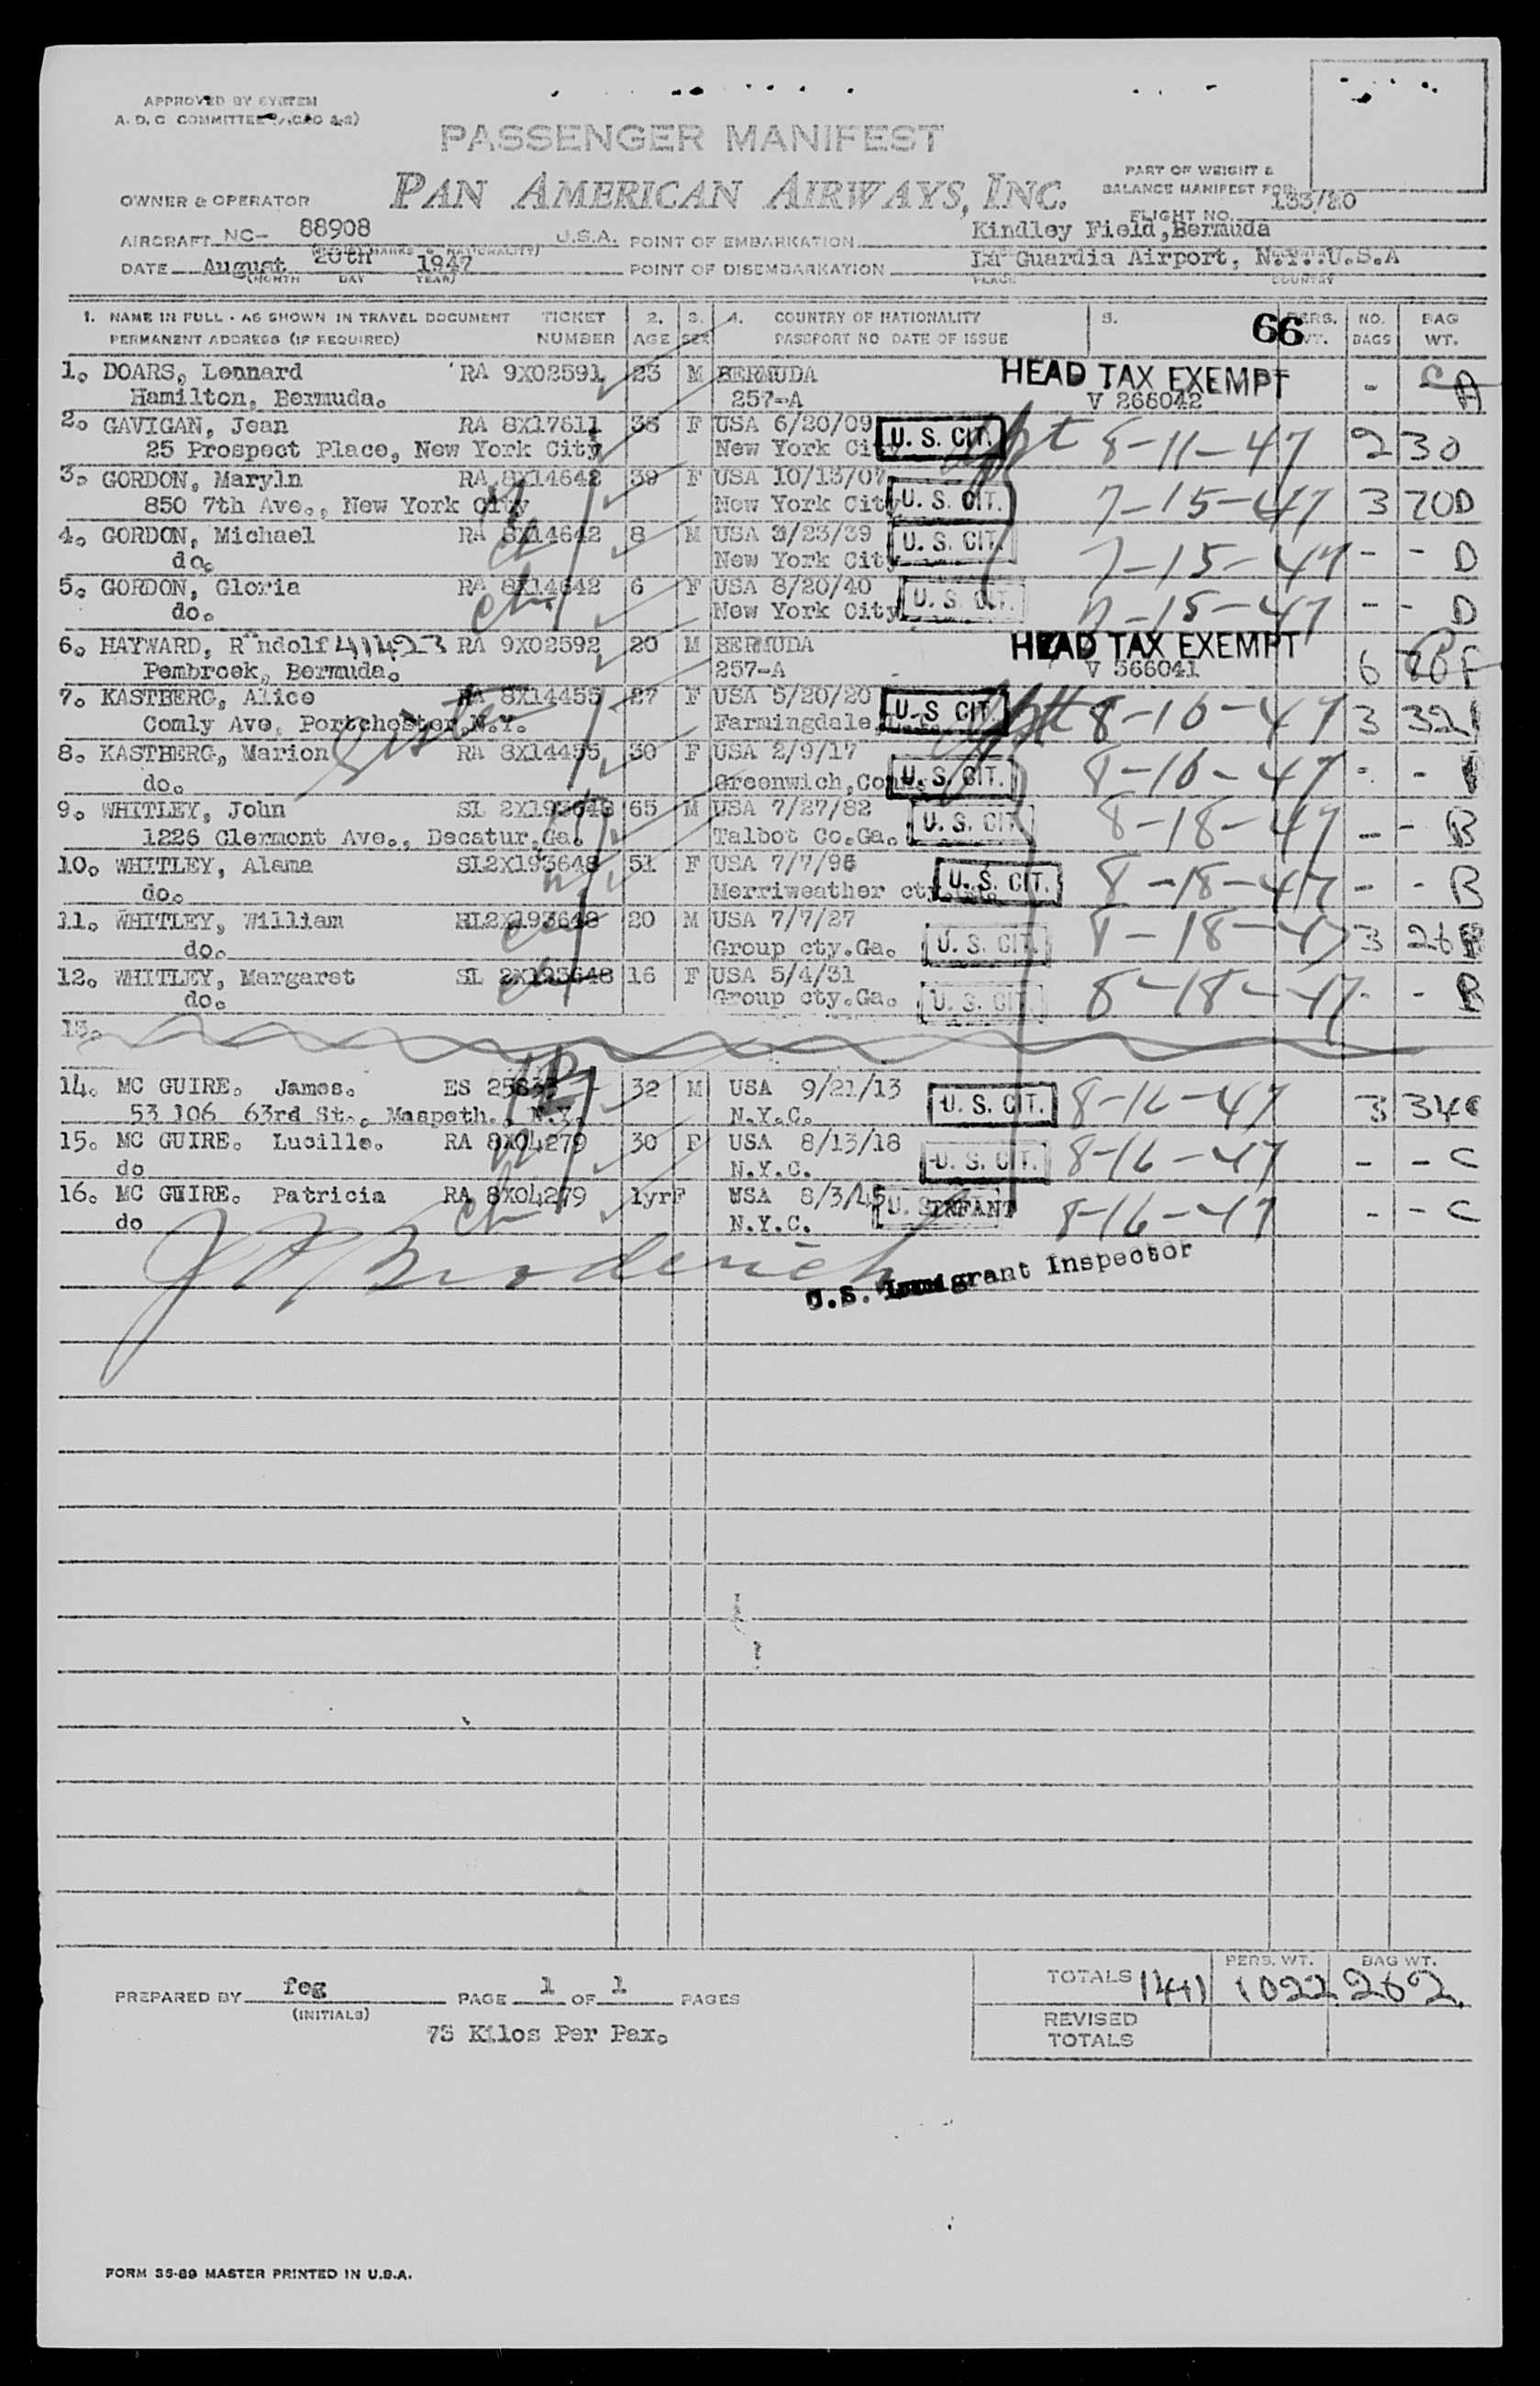 APPROVED BY SYSTEM
A. D. C COMMITTEE
PASSENGER MANIFEST
PAN AMERICAN AIRWAYS, INC.
PART OF WEIGHT &
BALANCE MANIFEST FOR
FLIGHT NO. 133/20
OWNER & OPERATOR
AIRCRAFT NC- 88908 U.S.A. POINT OF EMBARKATION Kindley Field, Bermuda
DATE August 20th 1947 POINT OF DISEMBARKATION La Guardia Airport, N.Y..U.S.A
(MONTH DAY YEAR) PLACE COUNTRY
1. NAME IN FULL - AS SHOWN IN TRAVEL DOCUMENT TICKET 2. 3. 4. COUNTRY OF NATIONALITY 5. 66 PERS. NO. BAG
PERMANENT ADDRESS (IF REQUIRED) NUMBER AGE SEX PASSPORT NO DATE OF ISSUE WT. BAGS WT.
1. DOARS, Lennard RA 9X02591 23 M BERMUDA HEAD TAX EXEMPT - A
Hamilton, Bermuda. 257-A V 266042
2. GAVIGAN, Jean RA 8X17611 38 F USA 6/20/09 U. S. CIT. 8-11-47 2 30
25 Prospect Place, New York City New York City
3. GORDON, Maryln RA 8X14642 39 F USA 10/13/07 U. S. CIT. 7-15-47 3 70D
850 7th Ave., New York City New York City
4. GORDON, Michael RA 8X14642 8 M USA /23/39 U. S. CIT. 7-15-47 - - D
do. New York City
5. GORDON, Gloria RA 8X14642 6 F USA 8/20/40 U. S. CIT. 7-15-47 - - D
do. New York City
6. HAYWARD, Randolf 41423 RA 9X02592 20 M BERMUDA HEAD TAX EXEMPT 6 F
Pembroek, Bermuda. 257-A V 366041
7. KASTBERG, Alice RA 8X14455 27 F USA 5/20/20 U. S. CIT. 8-16-47 3 32
Comly Ave, Portchester, N.Y. Farmingdale
sister
8. KASTBERG, Marion RA 8X14455 30 F USA 2/9/17 U. S. CIT. 8-16-47 - -
do. Greenwich, Conn.
9. WHITLEY, John SI 2X193648 65 M USA 7/27/82 U. S. CIT. 8-18-47 - - B
1226 Clermont Ave., Decatur, Ga. Talbot Co.Ga.
10. WHITLEY, Alama SI2X193648 51 F USA 7/7/96 U. S. CIT. 8-18-47 - - B
do. Merriweather cty.
11. WHITLEY, William SI2X193648 20 M USA 7/7/27 U. S. CIT. 8-18-47 3 26 B
do. Group cty.Ga.
12. WHITLEY, Margaret SI 2X193648 16 F USA 5/4/31 U. S. CIT. 8-18-47 - - B
do. Group cty.Ga.
13.
14. MC GUIRE. James. ES 32 M USA 9/21/13 U. S. CIT. 8-16-47 3 34C
53 106 63rd St., Maspeth., N.Y. N.Y.C.
15. MC GUIRE. Lucille. RA 8X04279 30 F USA 8/13/18 U. S. CIT. 8-16-47 - - C
do N.Y.C.
16. MC GUIRE. Patricia RA 8X04279 1yr F USA 8/3/45 U. S. INFANT 8-16-47 - - C
do N.Y.C.
U.S. Immigrant Inspector
PREPARED BY feg PAGE 1 OF 1 PAGES
(INITIALS)
75 Kilos Per Pax.
PERS. WT. BAG WT.
TOTALS 14+1 1022 262
REVISED
TOTALS
FORM 35-89 MASTER PRINTED IN U.S.A.